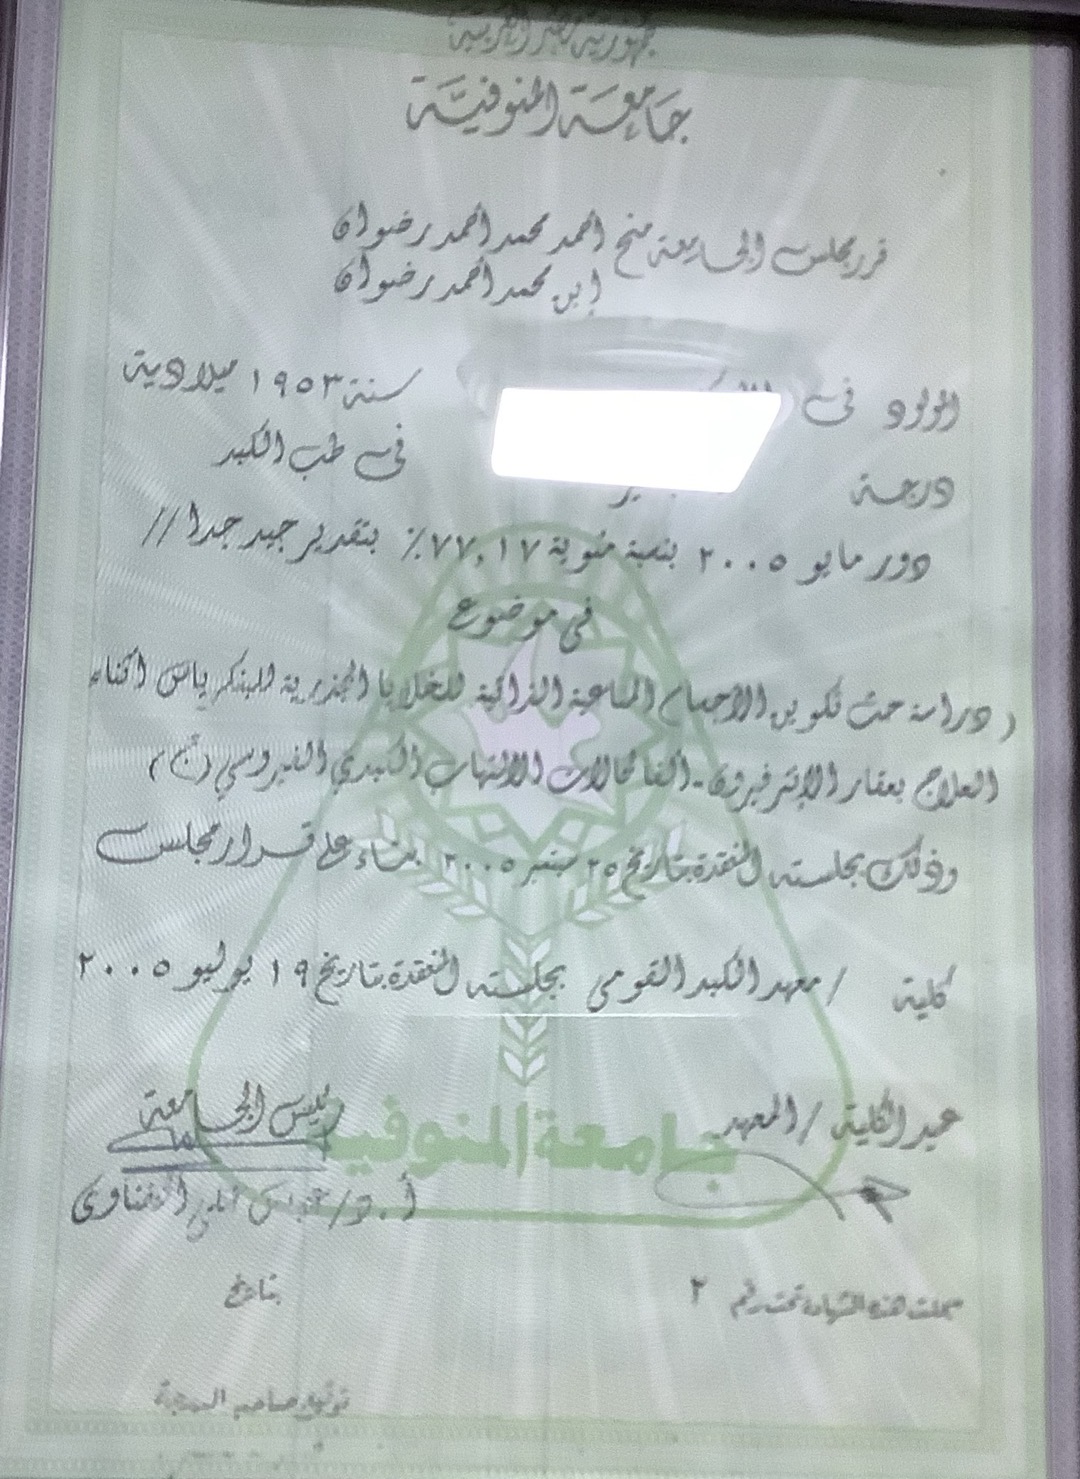 جمهورية مصر العربية
جامعة المنوفية
قرر مجلس الجامعة منح أحمد محمد أحمد رضوان
إبن محمد أحمد رضوان
المولود فى سنة ١٩٥٣ ميلادية
درجة فى طب الكبد
دور مايو ٢٠٠٥ بنسبة مئوية ٧٧,١٧٪ بتقدير جيد جدا //
فى موضوع
( دراسة حث تكوين الأجسام المناعية الذاتية للخلايا الجذرية للبنكرياس اثناء
العلاج بعقار الإنترفيرون - الفا لحالات الالتهاب الكبدي الفيروسي (ج)
وذلك بجلسته المنعقدة بتاريخ ٢٥ سبتمبر ٢٠٠٥ بناء على قرار مجلس
كلية / معهد الكبد القومى بجلسته المنعقدة بتاريخ ١٩ يوليو ٢٠٠٥
عميد الكلية / المعهد رئيس الجامعة
جامعة المنوفية
أ.د/ عباس الحفناوى
سجلت هذه الشهادة تحت رقم ٢ بتاريخ
توقيع صاحب الدرجة